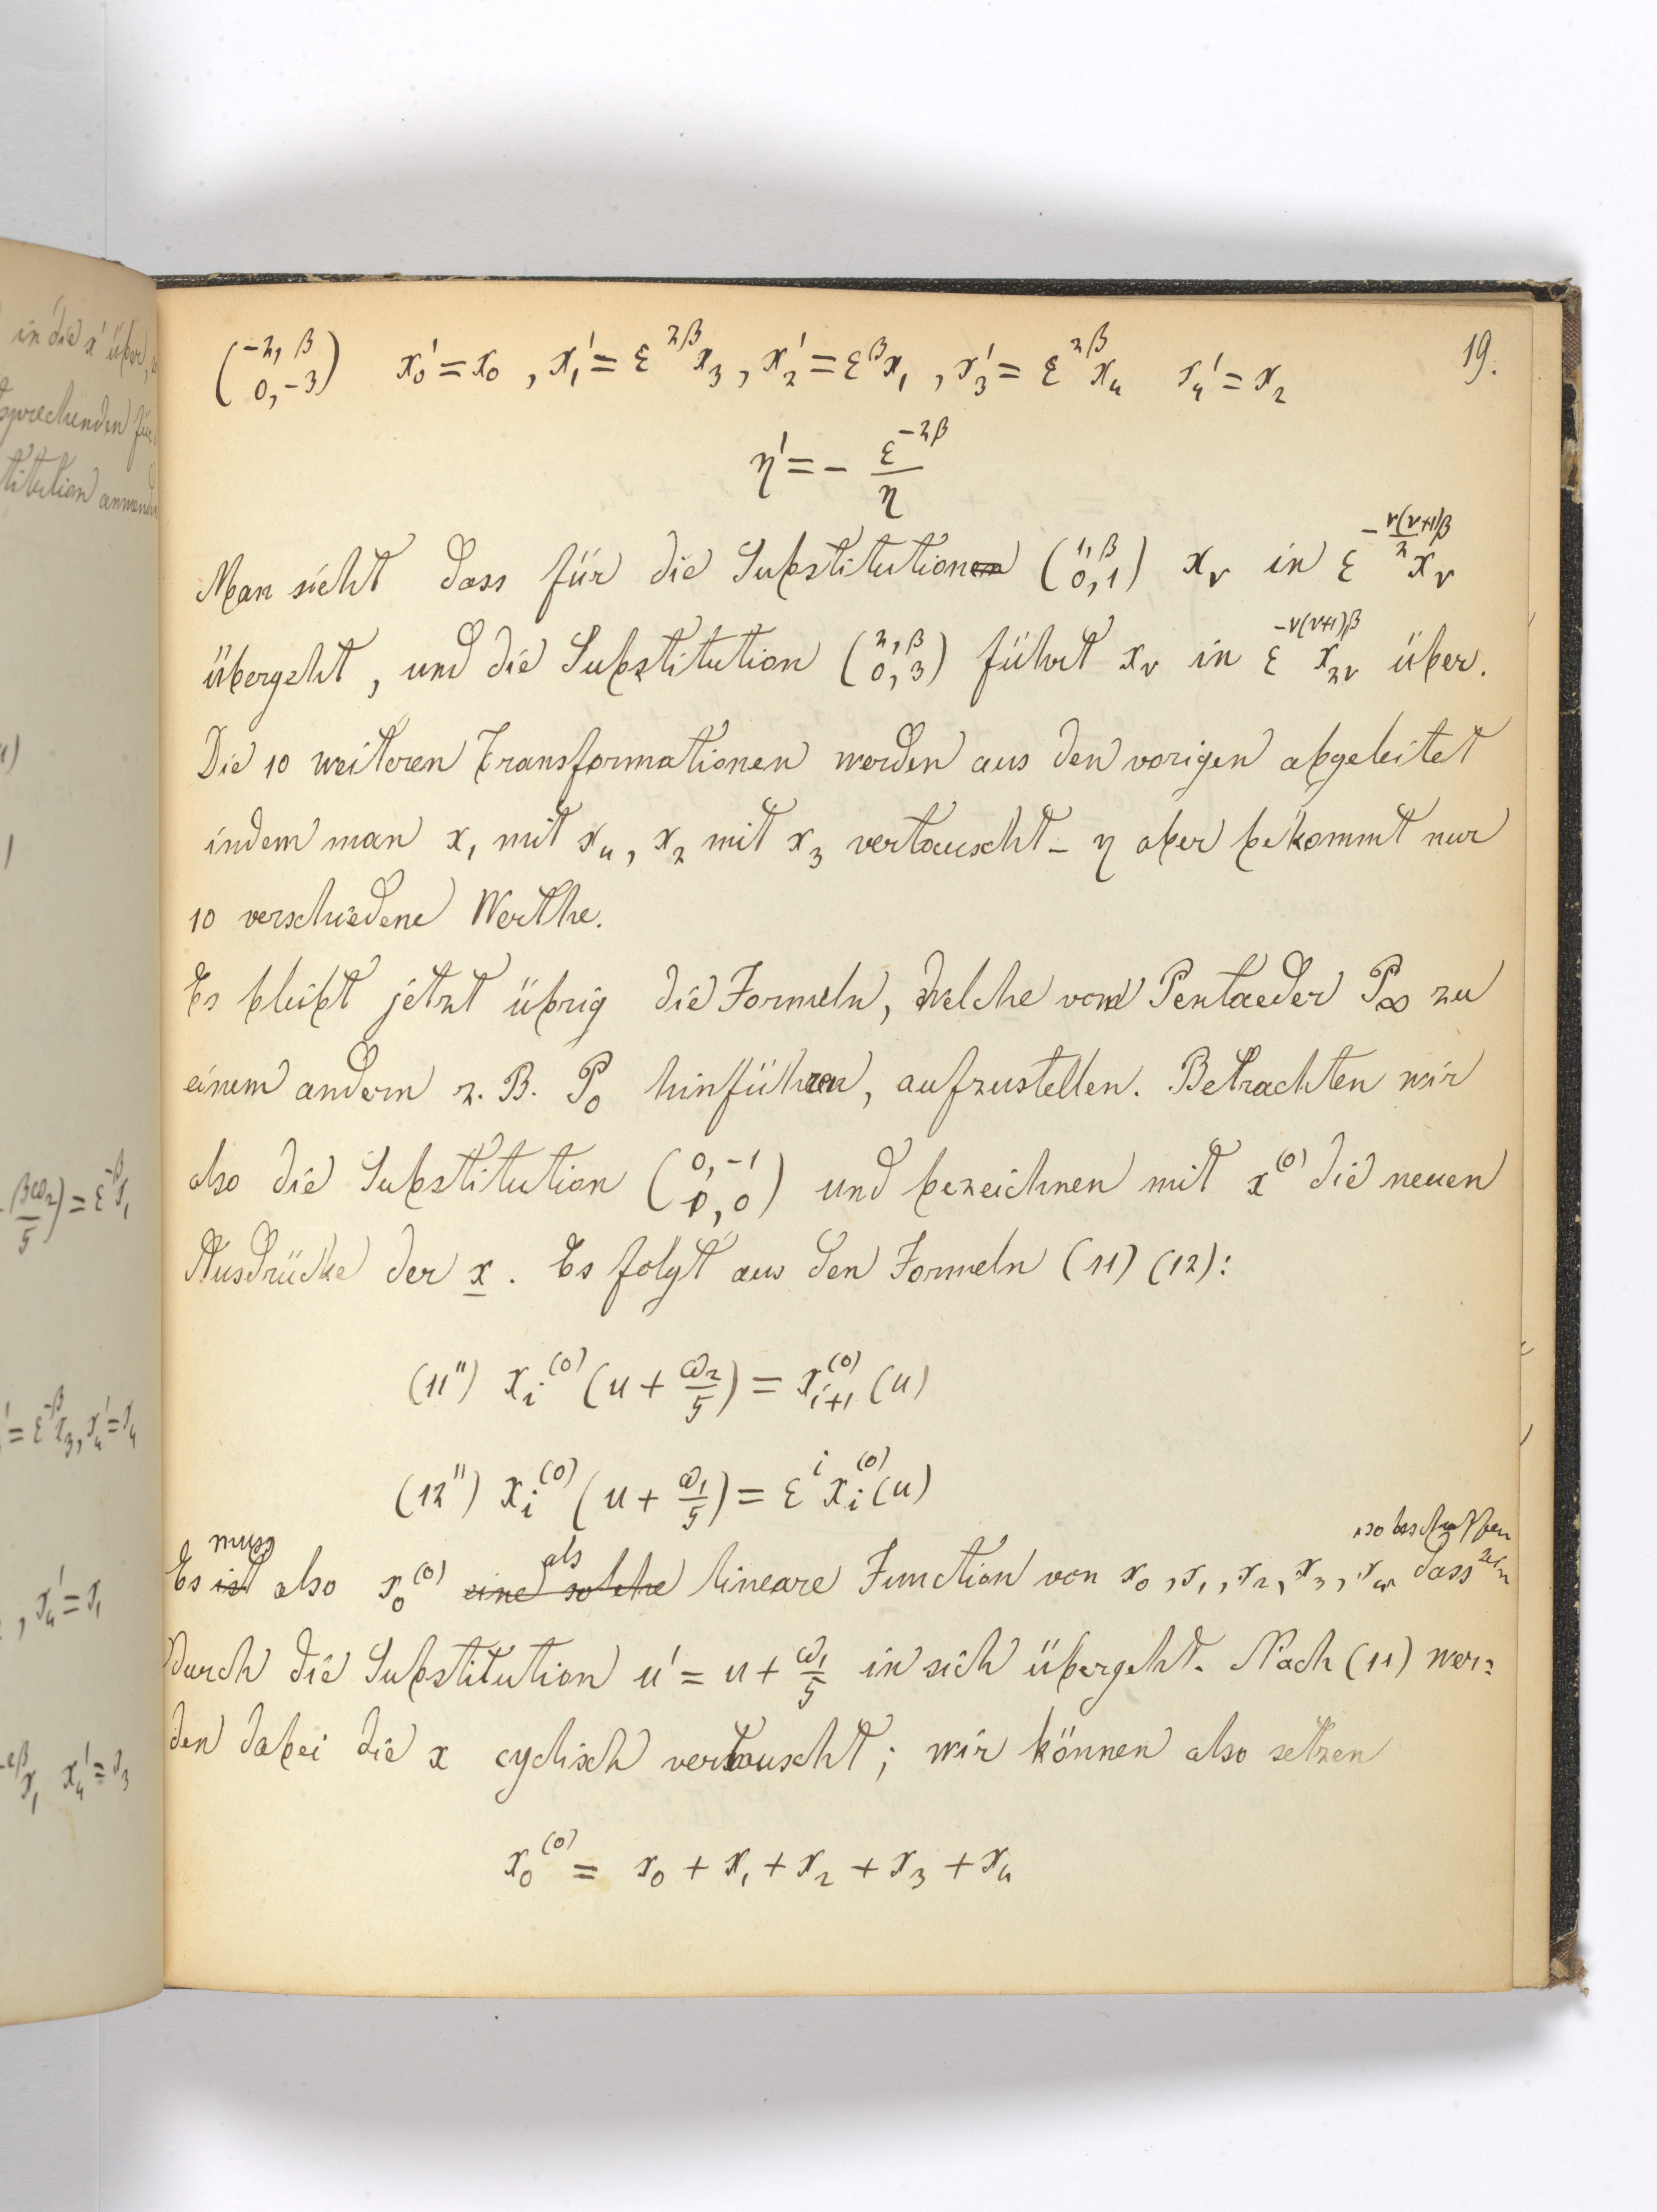 19.
(−2, β / 0, −3) x₀' = x₀ , x₁' = ε^{2β} x₃ , x₂' = ε^β x₁ , x₃' = ε^{2β} x₄ x₄' = x₂
η' = − ε^{−2β} / η
Man sieht dass für die Substitutionen (1, β / 0, 1) x_ν in ε^{−ν(ν+1)β/2} x_ν
übergeht, und die Substitution (2, β / 0, 3) führt x_ν in ε^{−ν(ν+1)β} x_{2ν} über.
Die 10 weiteren Transformationen werden aus den vorigen abgeleitet
indem man x₁ mit x₄, x₂ mit x₃ vertauscht – η aber bekommt nur
10 verschiedene Werthe.
Es bleibt jetzt übrig die Formeln, welche vom Pentaeder P∞ zu
einem andern z. B. P₀ hinführen, aufzustellen. Betrachten wir
also die Substitution (0, −1 / 1, 0) und bezeichnen mit x^{(0)} die neuen
Ausdrücke der x. Es folgt aus den Formeln (11) (12):
(11'') x_i^{(0)} (u + ω₂/5) = x_{i+1}^{(0)} (u)
(12'') x_i^{(0)} (u + ω₁/5) = ε^i x_i^{(0)} (u)
muss als so beschaffen sein
Es ist also x₀^{(0)} eine solche lineare Function von x₀, x₁, x₂, x₃, x₄, dass
durch die Substitution u' = u + ω₁/5 in sich übergeht. Nach (11) wer=
den dabei die x cyclisch vertauscht; wir können also setzen
x₀^{(0)} = x₀ + x₁ + x₂ + x₃ + x₄
in die x' über,
sprechenden für
titution
βω₂/5) = ε^{−β} x₁
' = ε^{−β} x₃, x₄' = x₄
, x₄' = x₁
x₁ x₄' = x₃